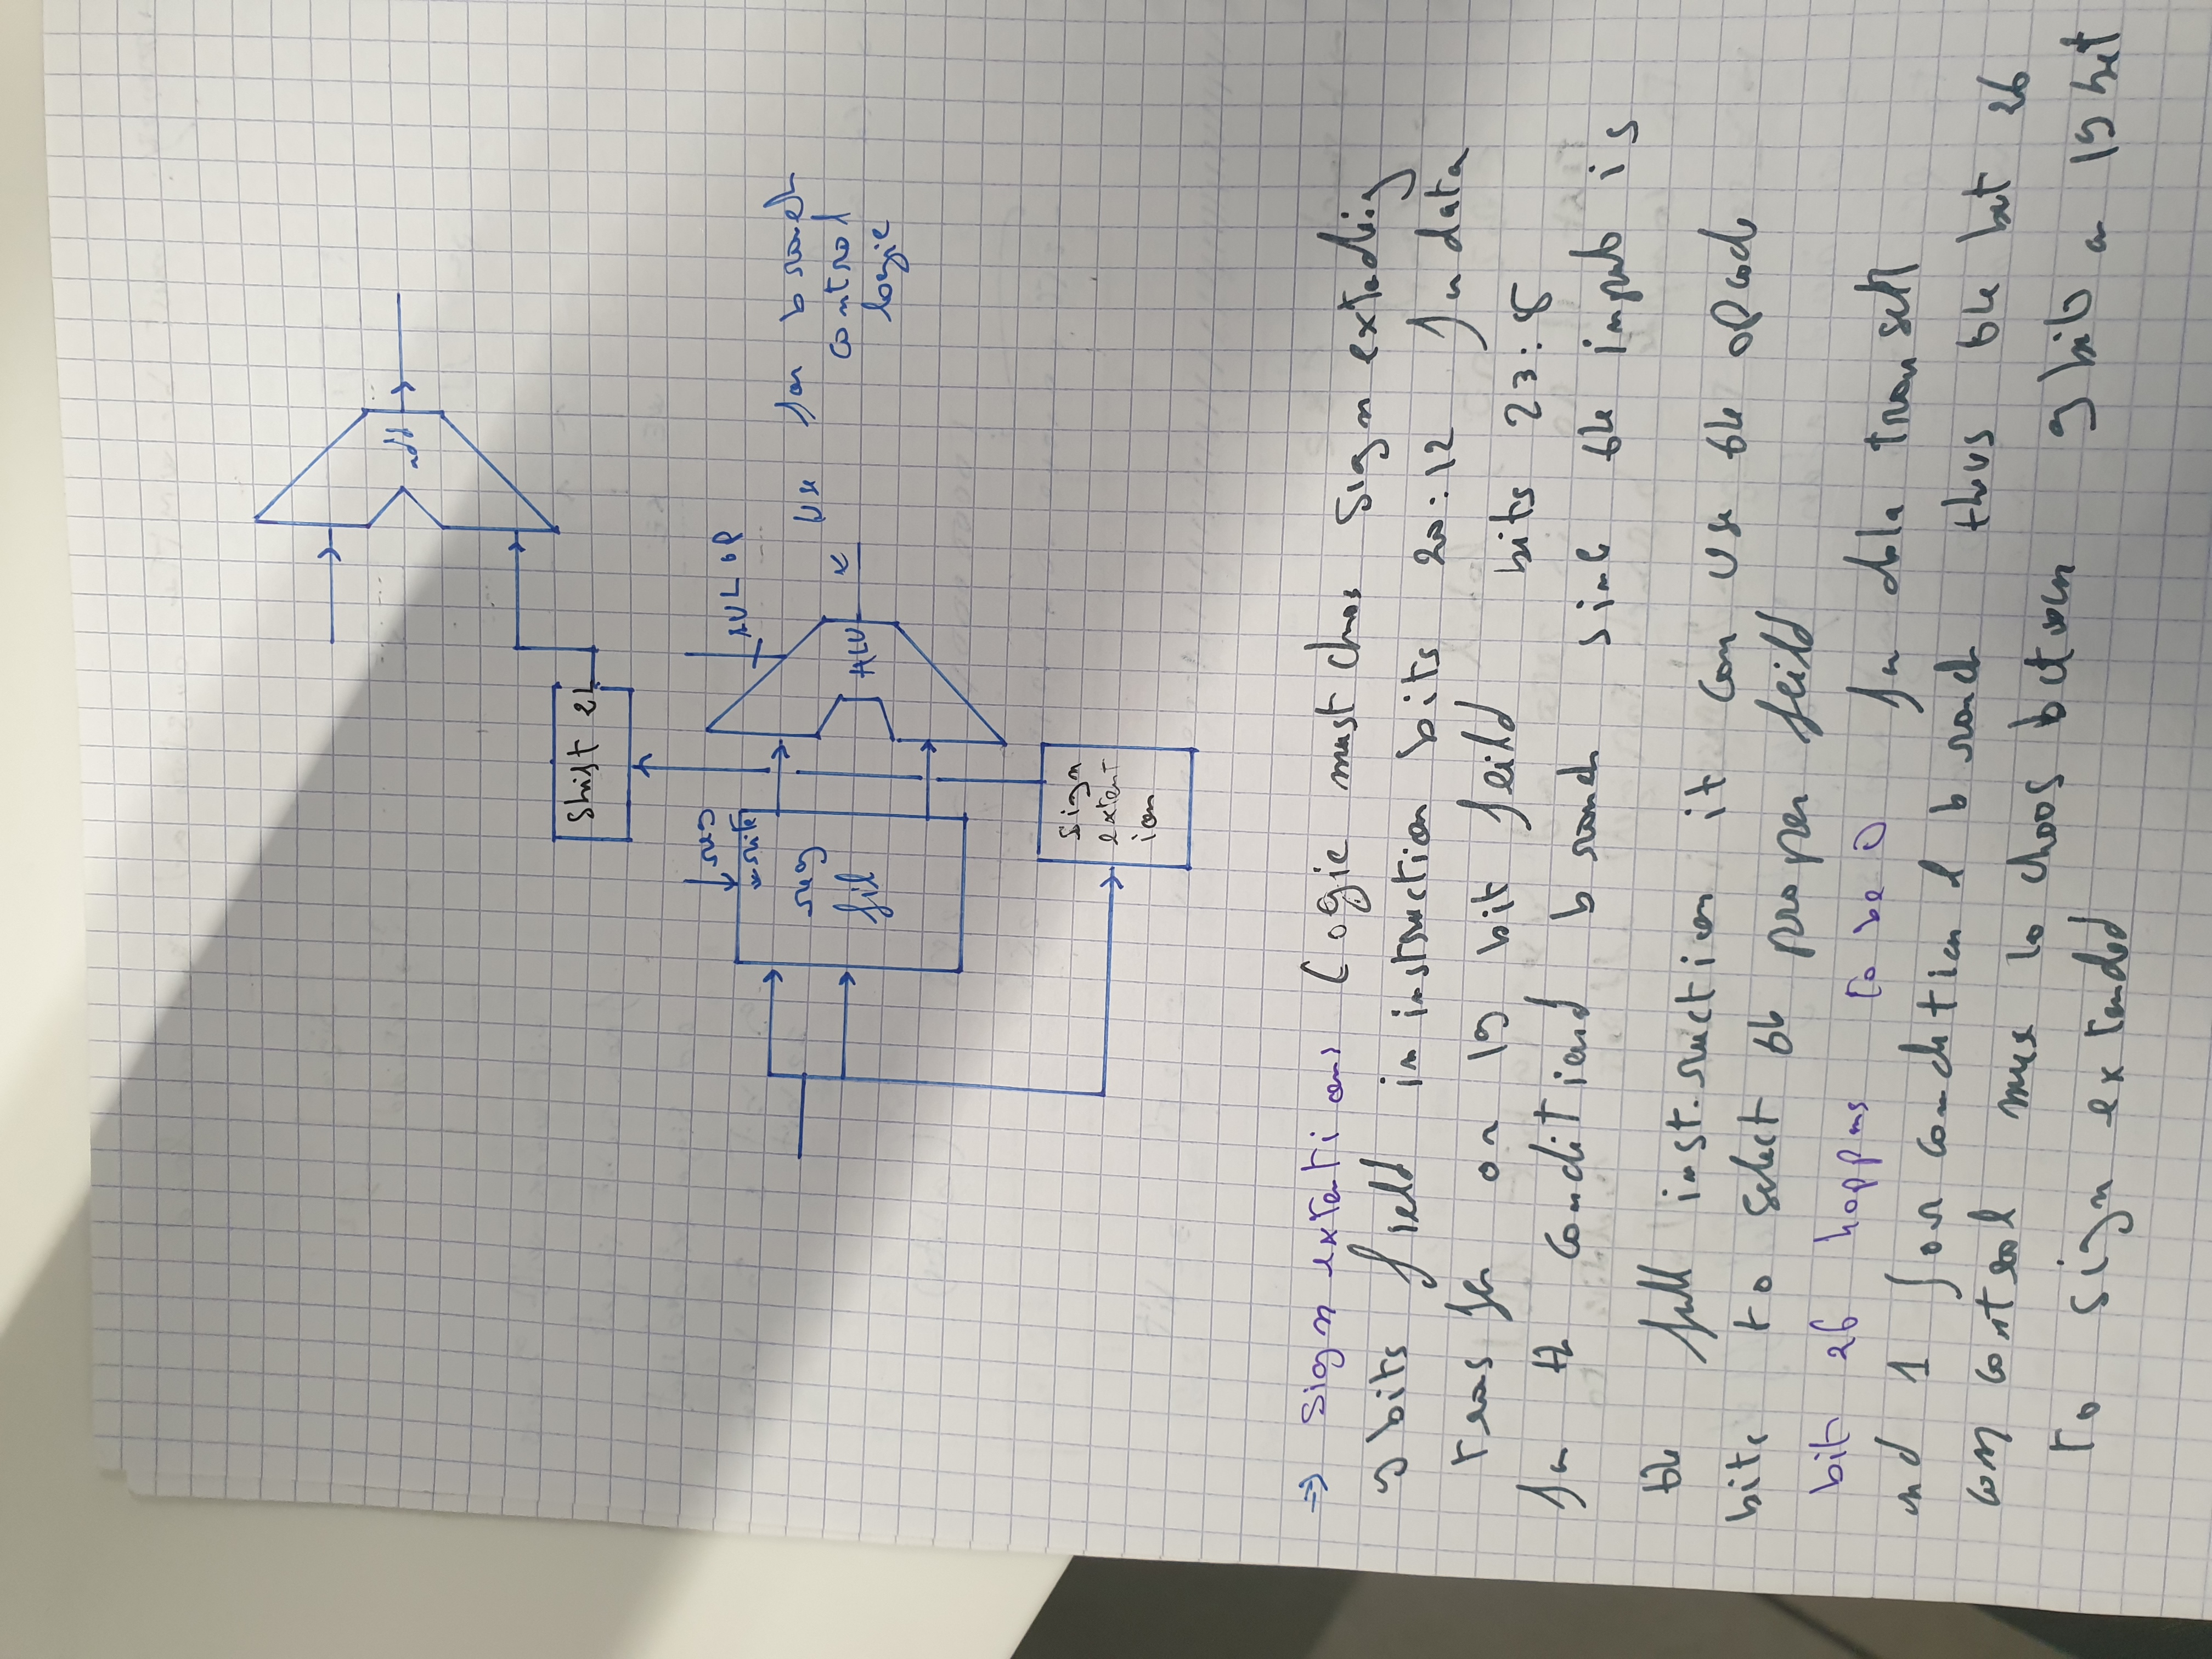 add
Shift 2L
reg
write
ALU OP
reg
fil
ALU
Use for branch
control
logic
Sign
extent
ion
⇒ Sign extention Logic must choos sign extading
9 bits field in instruction bits 20:12 for data
trasfer or 19 bit feild bits 23:5
for the conditional branch sinc the input is
the full instruction it can use the opcode
bits to select the proper feild
bit 26 happens to be 0 for data
and 1 for conditional branch thus the bit 26
can control mux to choos between 9 bit or 19 bit
to sign extended